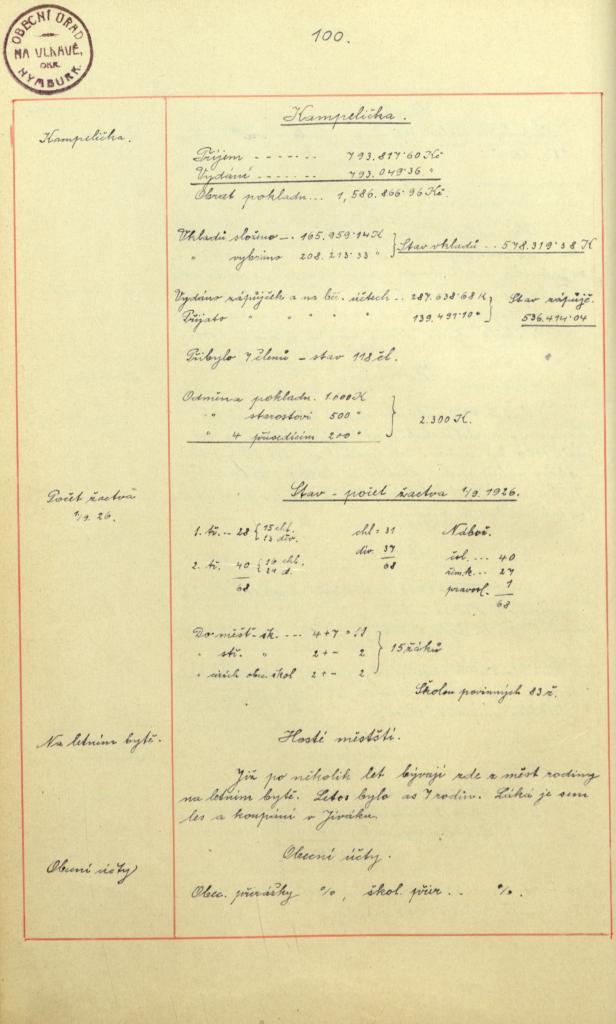 100.
OBECNÍ ÚŘAD
NA VLKAVĚ,
OKR.
NYMBURK.
Kampelička.
Kampelička.
Příjem - - - - - - - 793.817·60 Kč
Vydání - - - - - - - 793.049·36 "
Obrat pokladu... 1,586.866·96 Kč.
Vkladů složeno -. 165.959·14 K
" vybráno 208.213·33 "
Stav vkladů .. 578.319·38 K
Vydáno zápůjček a na běž. účtech .. 287.638·68 K
Přijato " " " " " 139.491·10 "
Stav zápůjč.
536.414·04
Přibylo 7 členů - stav 118 čl.
Odměna pokladn. 1.000 K
" starostovi 500 "
" 4 přísedícím 200 "
2.300 K.
Počet žactva
1/9. 26.
Stav - počet žactva 1/9. 1926.
1. tř. -- 28 { 15 chl.
13 děv.
2. tř. 40 { 16 chl.
24 d.
68
chl = 31
div. 37
68
Nábož.
čsl. ... 40
řím.k. .. 27
pravosl. 1
68
Do měšť. šk. --- 4+7 = 11
" stř. " 2 + - 2
" cizích obec. škol 2 + - 2
15 žáků
Školou povinných 83 ž.
Na letním bytě.
Hosté městští.
Již po několik let bývají zde z měst rodiny
na letním bytě. Letos bylo as 7 rodin. Láká je sem
les a koupání v Jiváku.
Obecní účty
Obecní účty.
Obec. přirážky %, škol. přir. .. %.